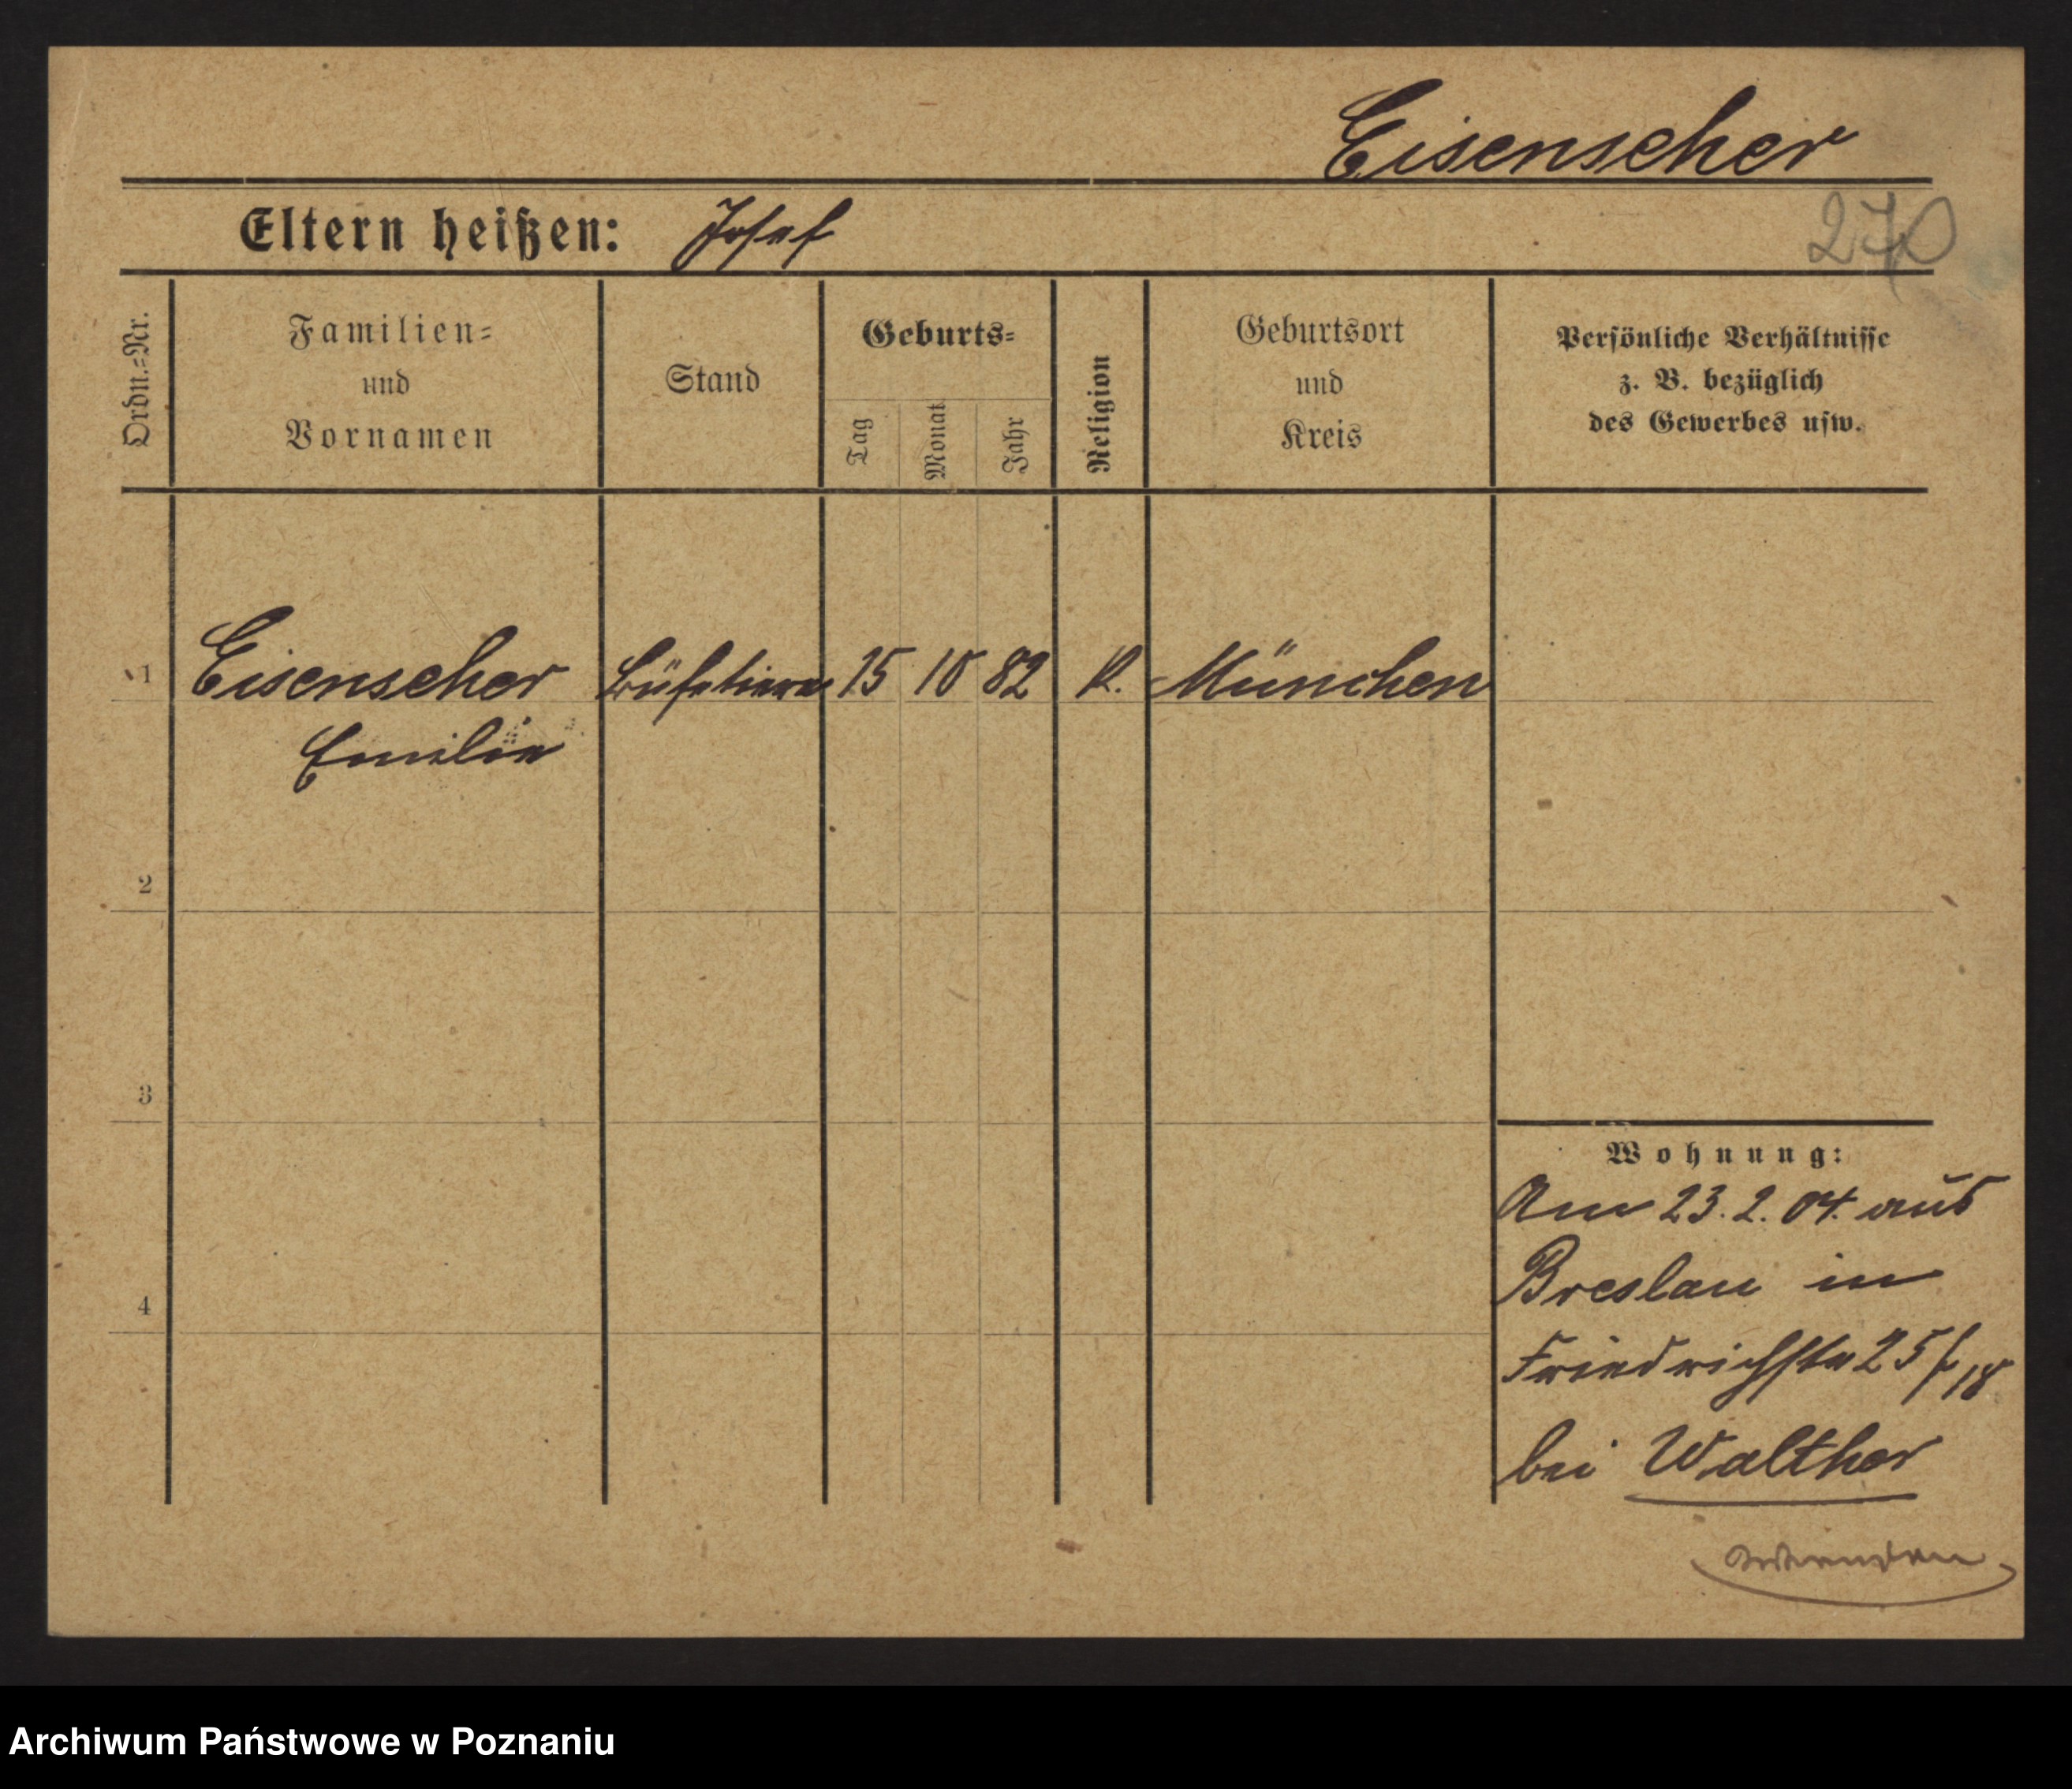 Eisenscher
Eltern heißen: Josef
270
Ordn.=Nr.
Familien=
und
Vornamen
Stand
Geburts=
Tag
Monat
Jahr
Religion
Geburtsort
und
Kreis
Persönliche Verhältnisse
z. B. bezüglich
des Gewerbes usw.
1 Eisenscher Büfetiere 15 10 82 K. München
Emilie
2
3
4
Wohnung:
Am 23.2.04. aus
Breslau in
Friedrichstr 25/18
bei Walther
wenden
Archiwum Państwowe w Poznaniu